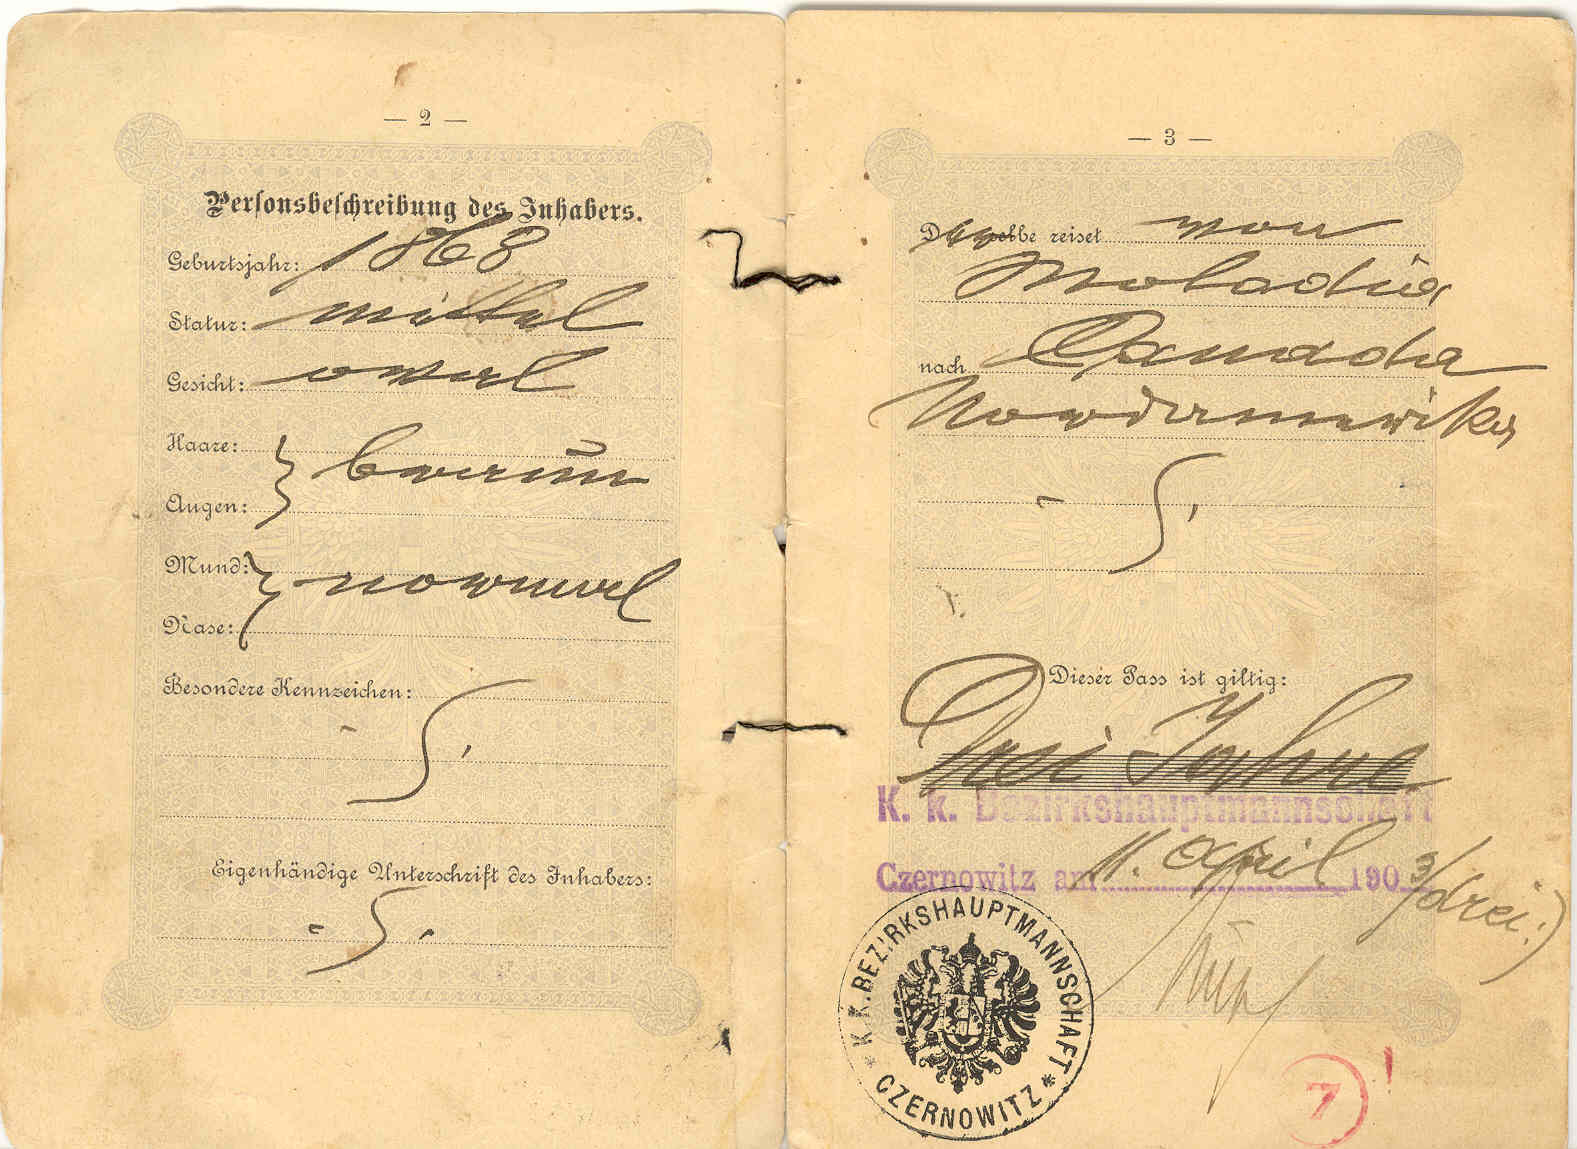 — 2 —
Personsbeschreibung des Inhabers.
Geburtsjahr: 1868
Statur: mittel
Gesicht: oval
Haare:
braun
Augen:
Mund:
normal
Nase:
Besondere Kennzeichen:
Eigenhändige Unterschrift des Inhabers:
— 3 —
Derselbe reiset von
Molodia
nach Canada
Nordamerika
Dieser Pass ist giltig:
Drei Jahre
K. k. Bezirkshauptmannschaft
Czernowitz am 11. April 1903/drei:)
* K.K. BEZIRKSHAUPTMANNSCHAFT * CZERNOWITZ
7